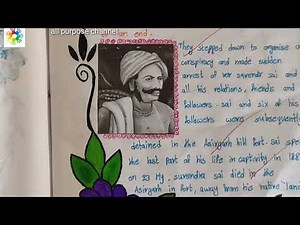 all purpose channel
an end.
They stepped down to organise a
conspiracy and made sudden
arrest of veer surendr sai and
all his relations, friends and
followers. sai and six of his
followers were subsequently
detained in the Asirgarh hill fort. sai spe
the last part of his life in captivity in 188
on 23 My, surendra sai died in the
Asirgarh in fort, away from his native land